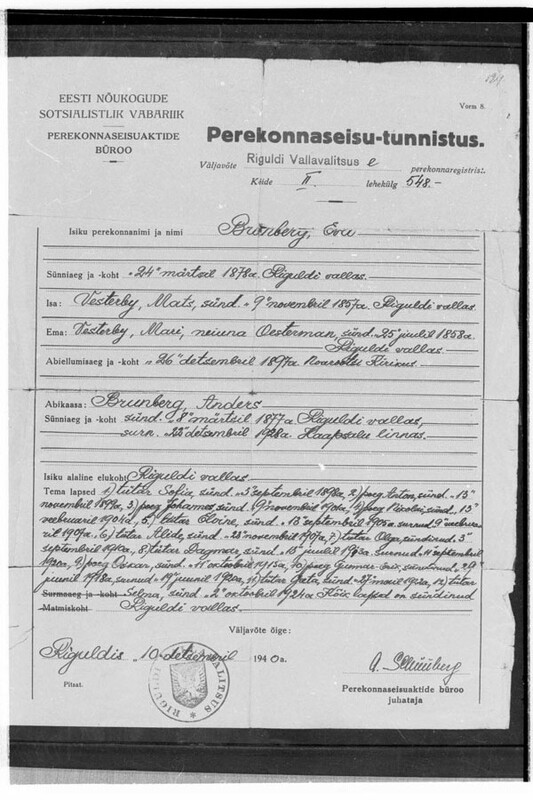 129.
EESTI NÕUKOGUDE
SOTSIALISTLIK VABARIIK
PEREKONNASEISUAKTIDE
BÜROO
Vorm 8.
Perekonnaseisu-tunnistus.
Väljavõte Riguldi Vallavalitsus e perekonnaregistrist.
Köide II. lehekülg 548.-
Isiku perekonnanimi ja nimi Brunberg, Eva
Sünniaeg ja -koht "24" märtsil 1878a. Riguldi vallas.
Isa: Vesterby, Mats, sünd. "9" novembril 1857a. Riguldi vallas.
Ema: Vesterby, Mari, neiuna Oesterman, sünd. "25" juulil 1858a.
Riguldi vallas.
Abiellumisaeg ja -koht "26" detsembril 1897a. Noarootsi Kirikus.
Abikaasa: Brunberg, Anders
Sünniaeg ja -koht sünd. "8" märtsil 1877a. Riguldi vallas,
surn. "22" detsembril 1928a. Haapsalu linnas.
Isiku alaline elukoht Riguldi vallas.
Tema lapsed 1) tütar Sofia, sünd. "3" septembril 1898a, 2) poeg Anton, sünd. "13"
novembril 1899a, 3) poeg Johannes, sünd. 9 novembril 4) poeg Nikolai, sünd. "13"
veebruaril 1904a, 5) tütar sünd. "18" septembril 1905a. surnud 9 veebrua-
ril 1907a, 6) tütar Alide, sünd. "23" novembril 1907a, 7) tütar Olga, sündinud 3"
septembril 8) tütar Dagmar, sünd. "13" juulil surnud "11" septembril
9) poeg Oskar, sünd. "11" oktoobril 1915a, 10) poeg Gunnar- sündinud "29"
juunil 1918a, surnud "19" juunil 11) tütar sünd. "27" mail 12) tütar
Surmaaeg ja -koht Selma, sünd. "2" oktoobril 1924a. Kõik lapsed on sündinud
Matmiskoht Riguldi vallas.
Väljavõte õige:
Riguldis, "10" detsembril 1940a.
Pitsat.
RIGULDI VALLAVALITSUS
Perekonnaseisuaktide büroo
juhataja